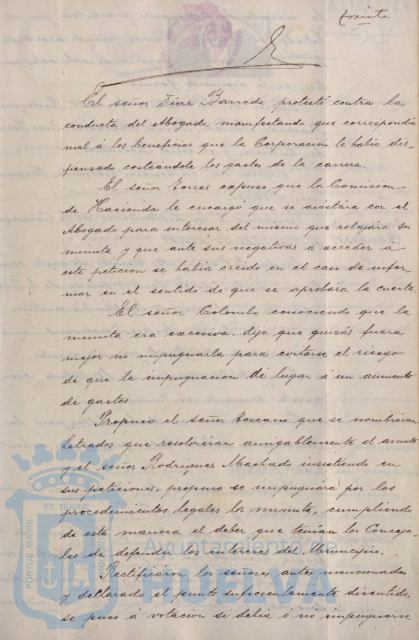 treinta
El señor Diaz Barreda protestó contra la
conducta del Abogado, manifestando que correspondia
mal á los beneficios que la Corporacion le habia dis-
pensado costeándole los gastos de la carrera.
El señor Torres expuso que la Comision
de Hacienda le encargó que se avistara con el
Abogado para interesar del mismo que rebajára su
minuta y que ante sus negativas á acceder á
esta peticion se habia creido en el caso de infor-
mar en el sentido de que se aprobára la cuenta.
El señor Colombo conociendo que la
minuta era excesiva, dijo que quizás fuera
mejor no impugnarla para evitarse el riesgo
de que la impugnacion dé lugar á un aumento
de gastos.
Propuso el señor Toscano que se nombráran
letrados que resolvieran amigablemente el asunto
y el señor Rodriguez Machado insistiendo en
sus peticiones, propuso se impugnára por los
procedimientos legales la minuta, cumpliendo
de esta manera el deber que tenian los Conceja-
les de defender los intereses del Municipio.
Rectificaron los señores antes mencionados
y declarado el punto suficientemente discutido,
se puso á votacion si debia ó no impugnarse
Ayuntamiento de
HUELVA
PORTUS MARIS
ET TERRÆ